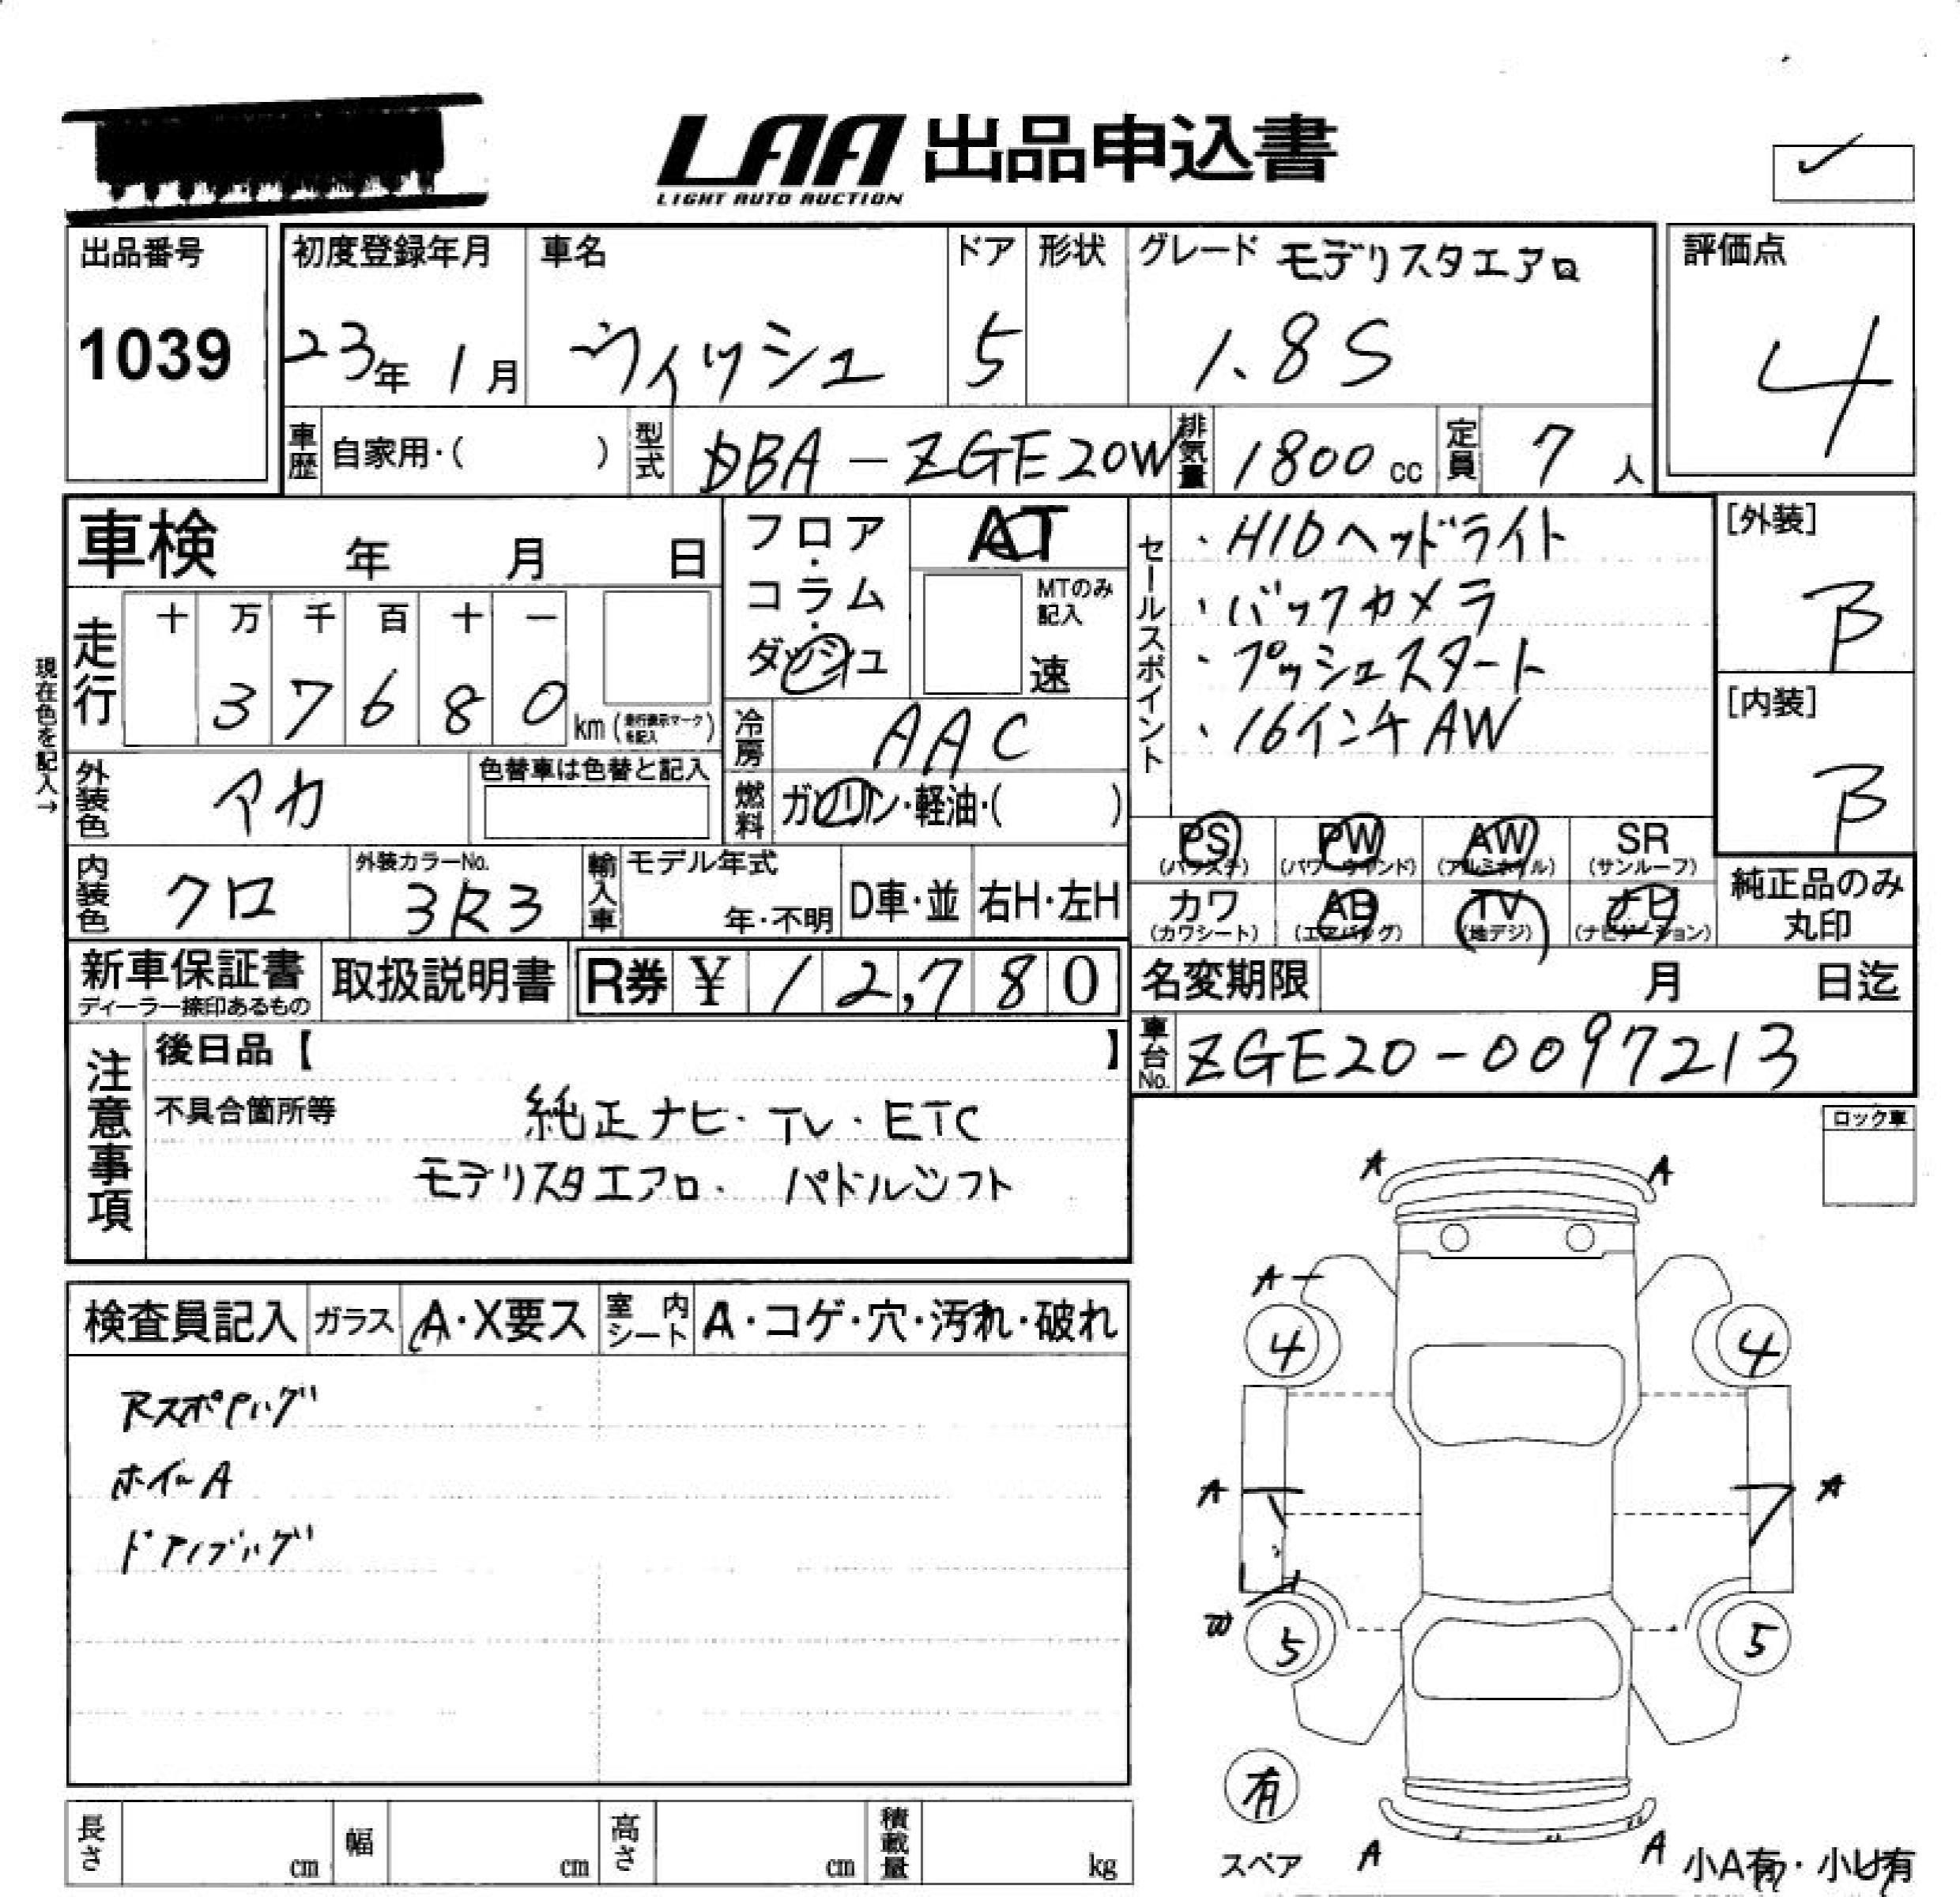 LAA 出品申込書
LIGHT AUTO AUCTION
出品番号
1039
初度登録年月
23年 1月
車名
ウィッシュ
ドア
5
形状
グレード モデリスタエアロ
1.8S
評価点
4
車歴 自家用・( )
型式 DBA-ZGE20W
排気量 1800cc
定員 7人
車検 年 月 日
フロア・コラム・ダッシュ
AT
MTのみ記入
速
セールスポイント
・HIDヘッドライト
・バックカメラ
・プッシュスタート
・16インチAW
[外装]
B
[内装]
B
現在色を記入→
走行
十 万 千 百 十 一
3 7 6 8 0 km (走行表示マークを記入)
冷房 AAC
外装色 アカ
色替車は色替と記入
燃料 ガソリン・軽油・( )
内装色 クロ
外装カラーNo.
3R3
輸入車
モデル年式
年・不明
D車・並
右H・左H
PS (パワステ)
PW (パワーウインド)
AW (アルミホイル)
SR (サンルーフ)
カワ (カワシート)
AB (エアバッグ)
TV (地デジ)
ナビ (ナビゲーション)
純正品のみ丸印
新車保証書
ディーラー捺印あるもの
取扱説明書
R券 ¥ 12,780
名変期限 月 日迄
車台No. ZGE20-0097213
注意事項
後日品【 】
不具合箇所等
純正ナビ・TV・ETC
モデリスタエアロ・パドルシフト
ロック車
検査員記入
ガラス A・X要ス
室内シート A・コゲ・穴・汚れ・破れ
ホイールA
A A
A
4 4
A A
W
5 5
有
スペア
A A
小A有・小U有
長さ cm
幅 cm
高さ cm
積載量 kg